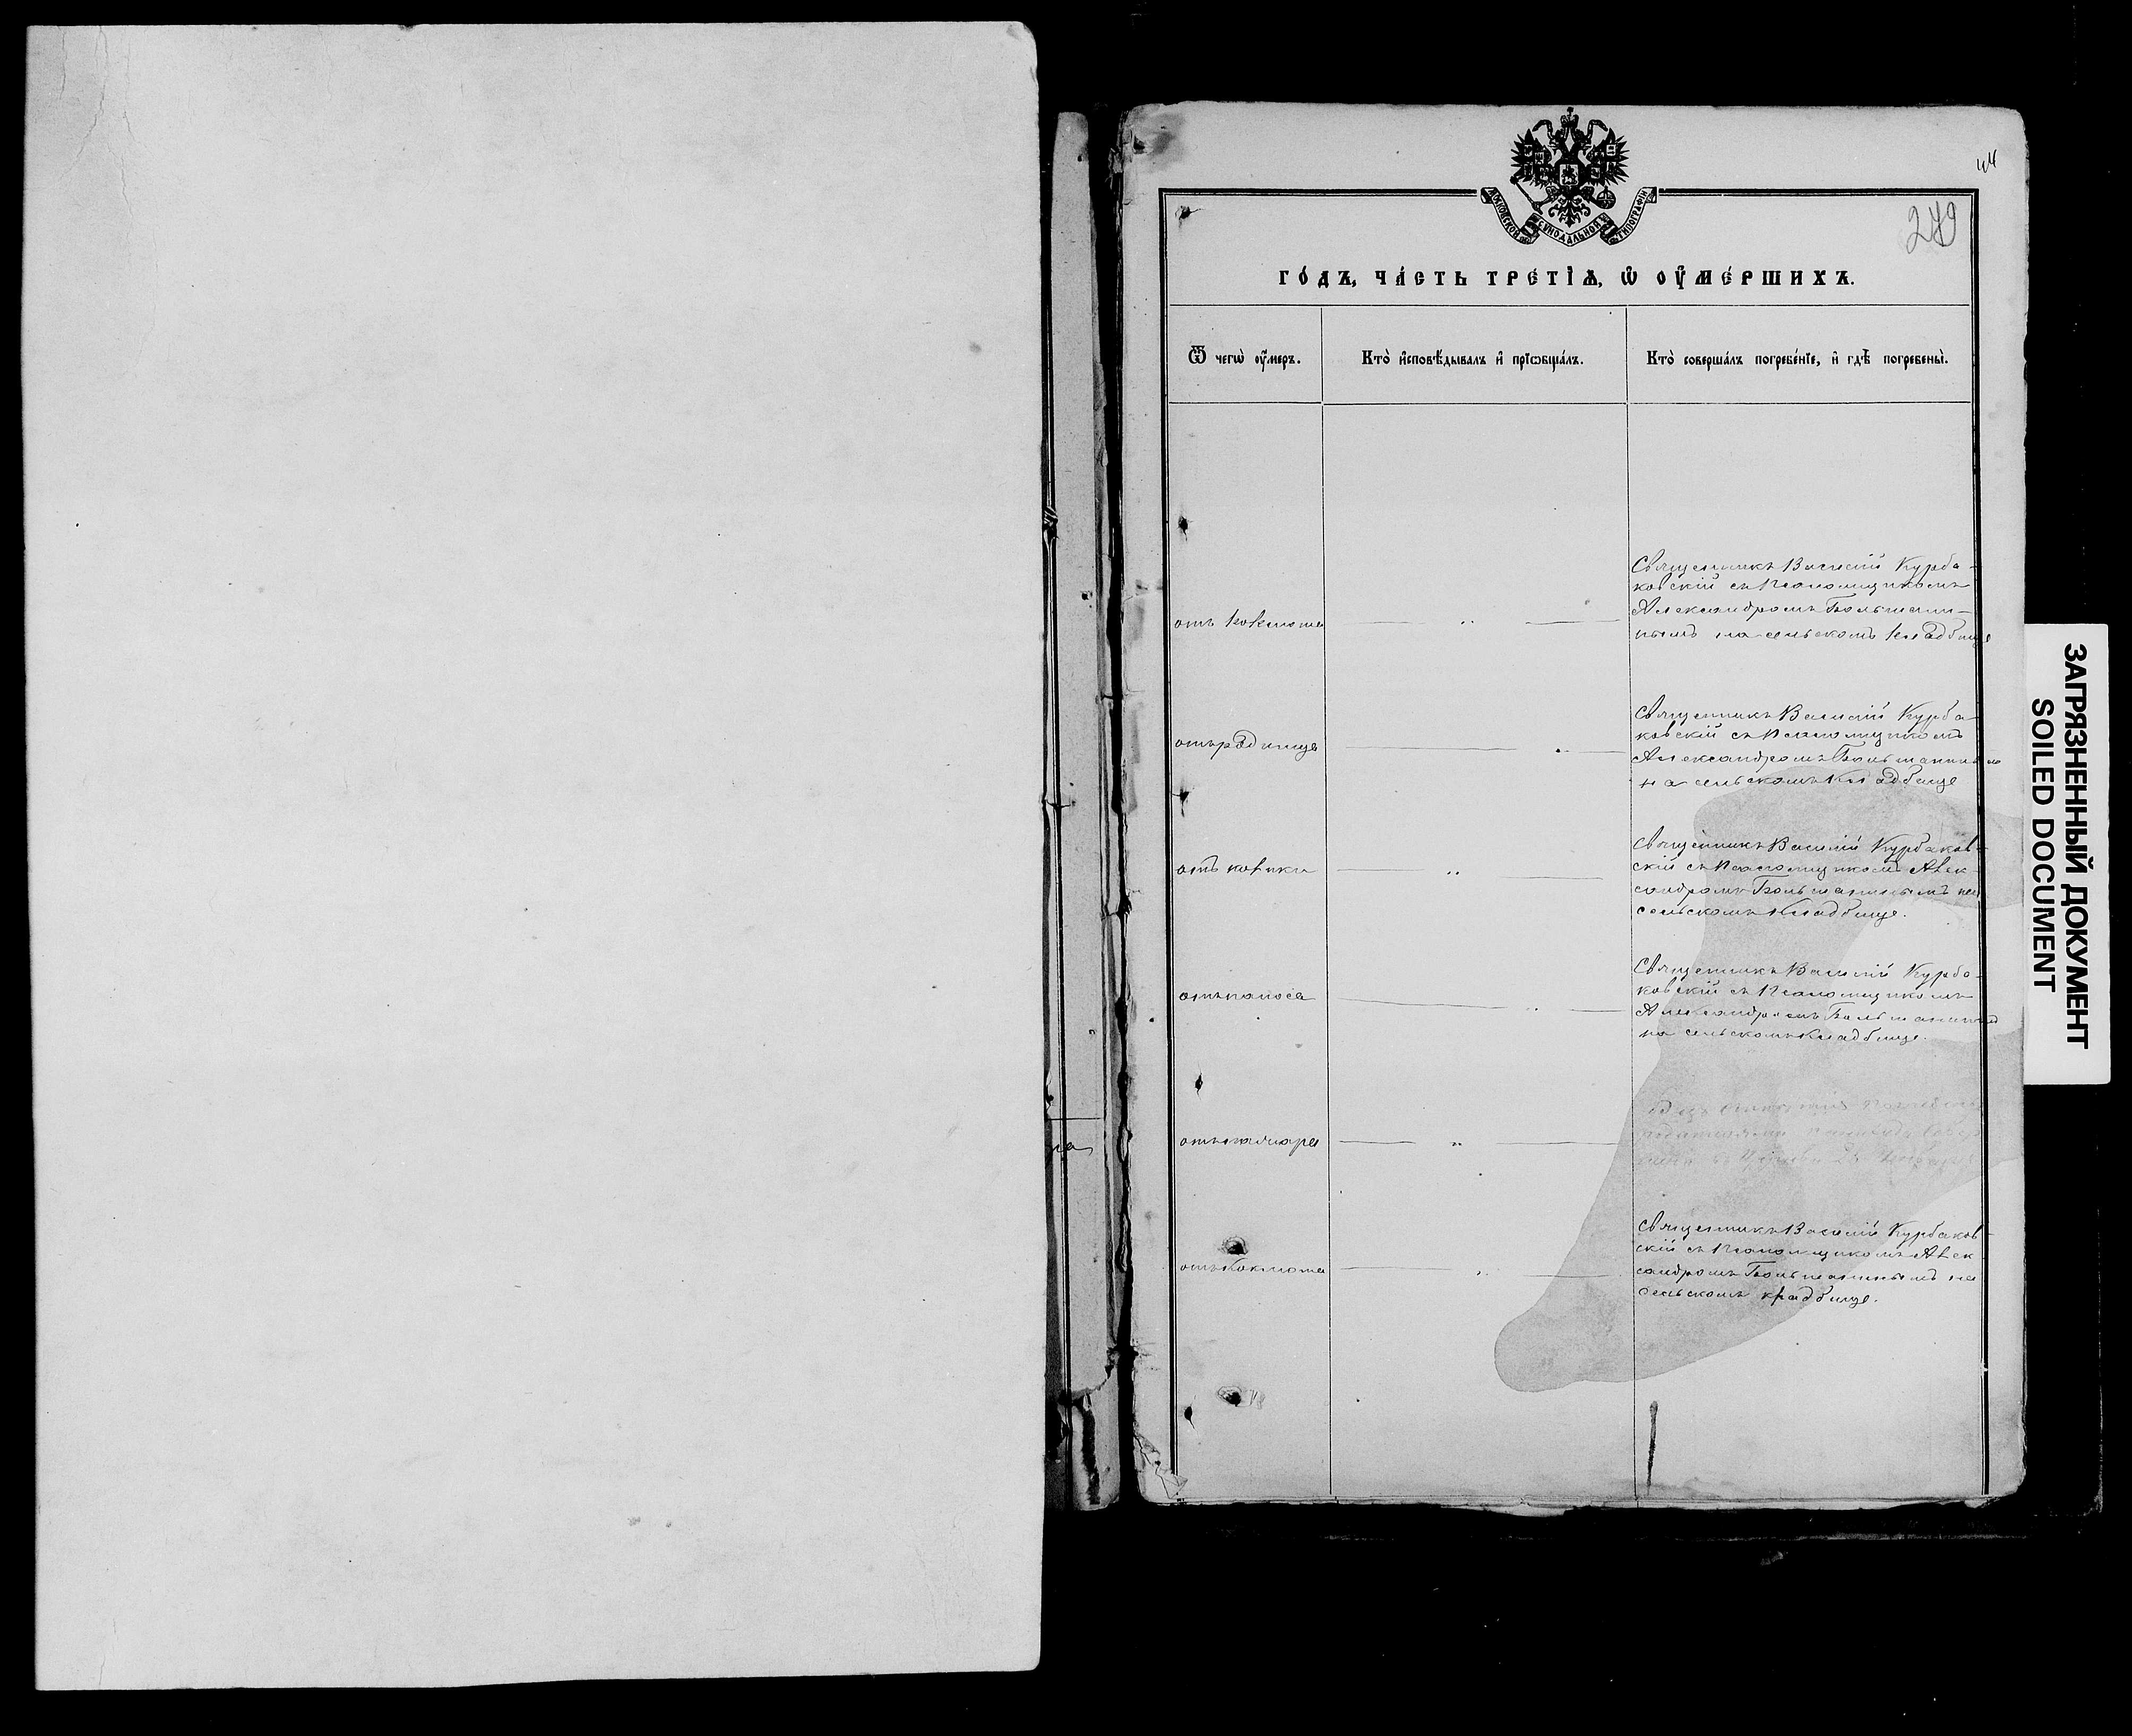 МОСКОВСКОЙ СѴНОДАЛЬНОЙ ТИПОГРАФІИ
44
ГО́ДЪ, ЧА́СТЬ ТРЕ́ТІѦ, Ѡ҆ ОУ҆МЕ́РШИХЪ.
Ѿ чегѡ̀ оу҆́меръ.
Кто̀ и҆сповѣ́дывалъ и҆ прїѡбща́лъ.
Кто̀ соверша́лъ погребе́нїе, и҆ гдѣ̀ погребены̀.
отъ коклюша
Священникъ Василій Курба-
ковскій съ Псаломщикомъ
Александромъ Большани-
нымъ на сельскомъ кладбище
отъ родимца
Священникъ Василій Курба-
ковскій съ Псаломщикомъ
Александромъ Большанинымъ
на сельскомъ Кладбище
отъ
Священникъ Василій Курбаков-
скій съ Псаломщикомъ Алек-
сандромъ Большанинымъ на
сельскомъ Кладбище.
отъ поноса
Священникъ Василій Курба-
ковскій съ Псаломщикомъ
Александромъ Большанинымъ
на сельскомъ Кладбище.
отъ
отъ Коклюша
Священникъ Василій Курбаков-
скій съ Псаломщикомъ Алек
сандромъ Большанинымъ на
сельскомъ кладбище.
ЗАГРЯЗНЕННЫЙ ДОКУМЕНТ
SOILED DOCUMENT